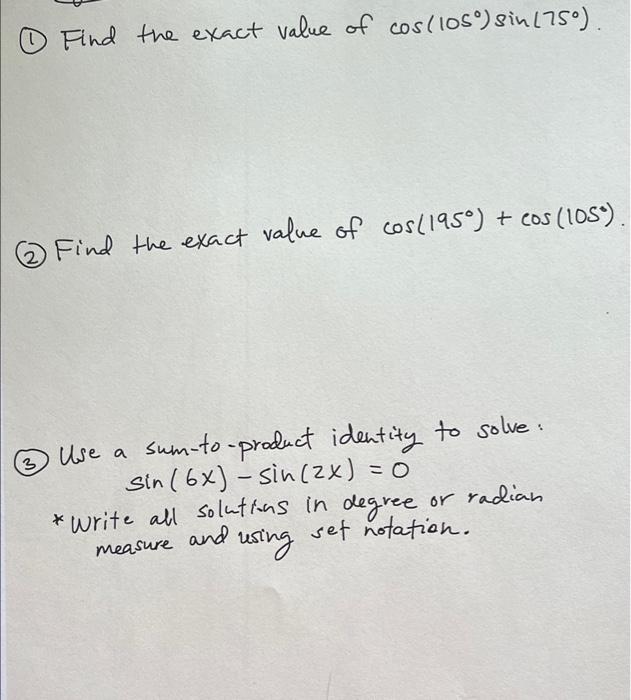 ① Find the exact value of cos(105°)sin(75°).
② Find the exact value of cos(195°) + cos(105°).
③ Use a sum-to-product identity to solve:
sin(6x) - sin(2x) = 0
* Write all solutions in degree or radian
measure and using set notation.